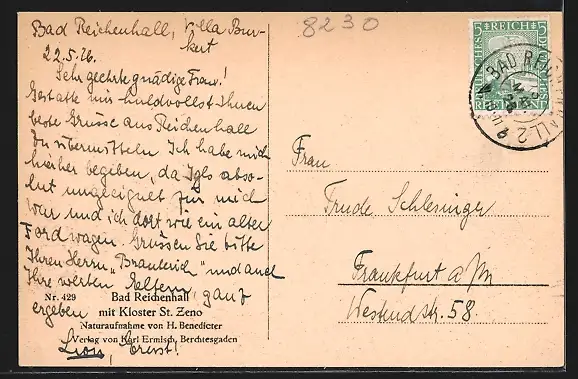 Bad Reichenhall, Villa Bur-
kert
22.5.26.
8230
Sehr geehrte gnädige Frau!
Gestatte mir huldvollst Ihnen
beste Grüsse aus Reichenhall
zu übermitteln. Ich habe mich
hieher begeben, da Igls abso-
lut ungeeignet für mich
war und ich dort wie ein alter
Fordwagen. Grüssen Sie bitte
Ihren Herrn „Bräuterich“ und auch
Ihre werten Eltern, ganz
ergeben
Ernst!
Nr. 429
Bad Reichenhall
mit Kloster St. Zeno
Naturaufnahme von H. Benedicter
Verlag von Karl Ermisch, Berchtesgaden
5 REICH 5
DEUTSCHES
RHEINLAND
BAD REICHENHALL 2
Frau
Trude Schlesinger
Frankfurt a/M
Westendstr. 58.